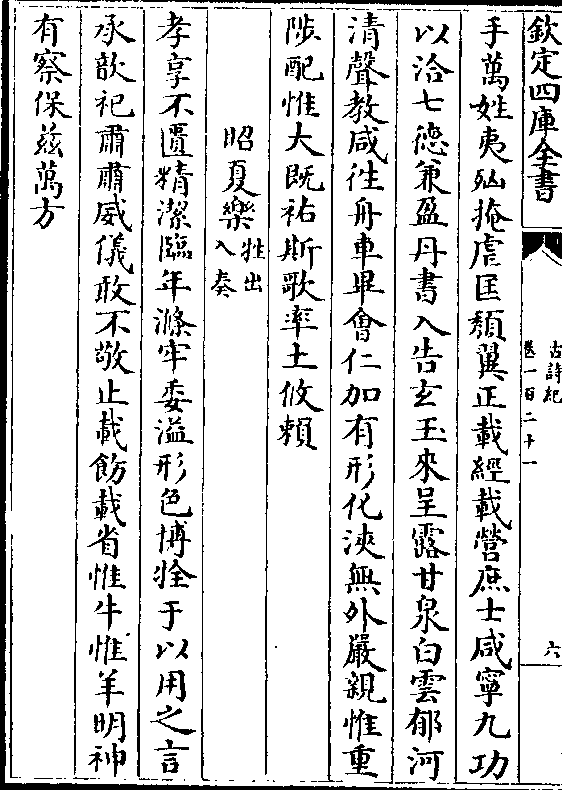 欽定四庫全書
古詩紀
卷一百二十一
六
手萬姓夷㓙掩虐匡頽翼正載經載營庶士咸寧九功
以洽七德兼盈丹書入告玄玉來呈露甘泉白雲郁河
清聲教咸徃舟車畢會仁加有形化浹無外嚴親惟重
陟配惟大既祐斯歌率土攸賴
昭夏樂牲出入奏
孝享不匱精潔臨年滌牢委溢形色博牷于以用之言
承歆祀肅肅威儀敢不敬止載飭載省惟牛惟羊明神
有察保兹萬方